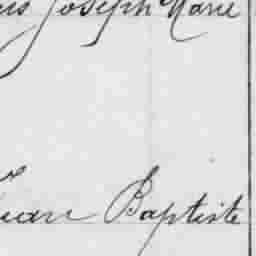 Joseph Marie
Jean Baptiste